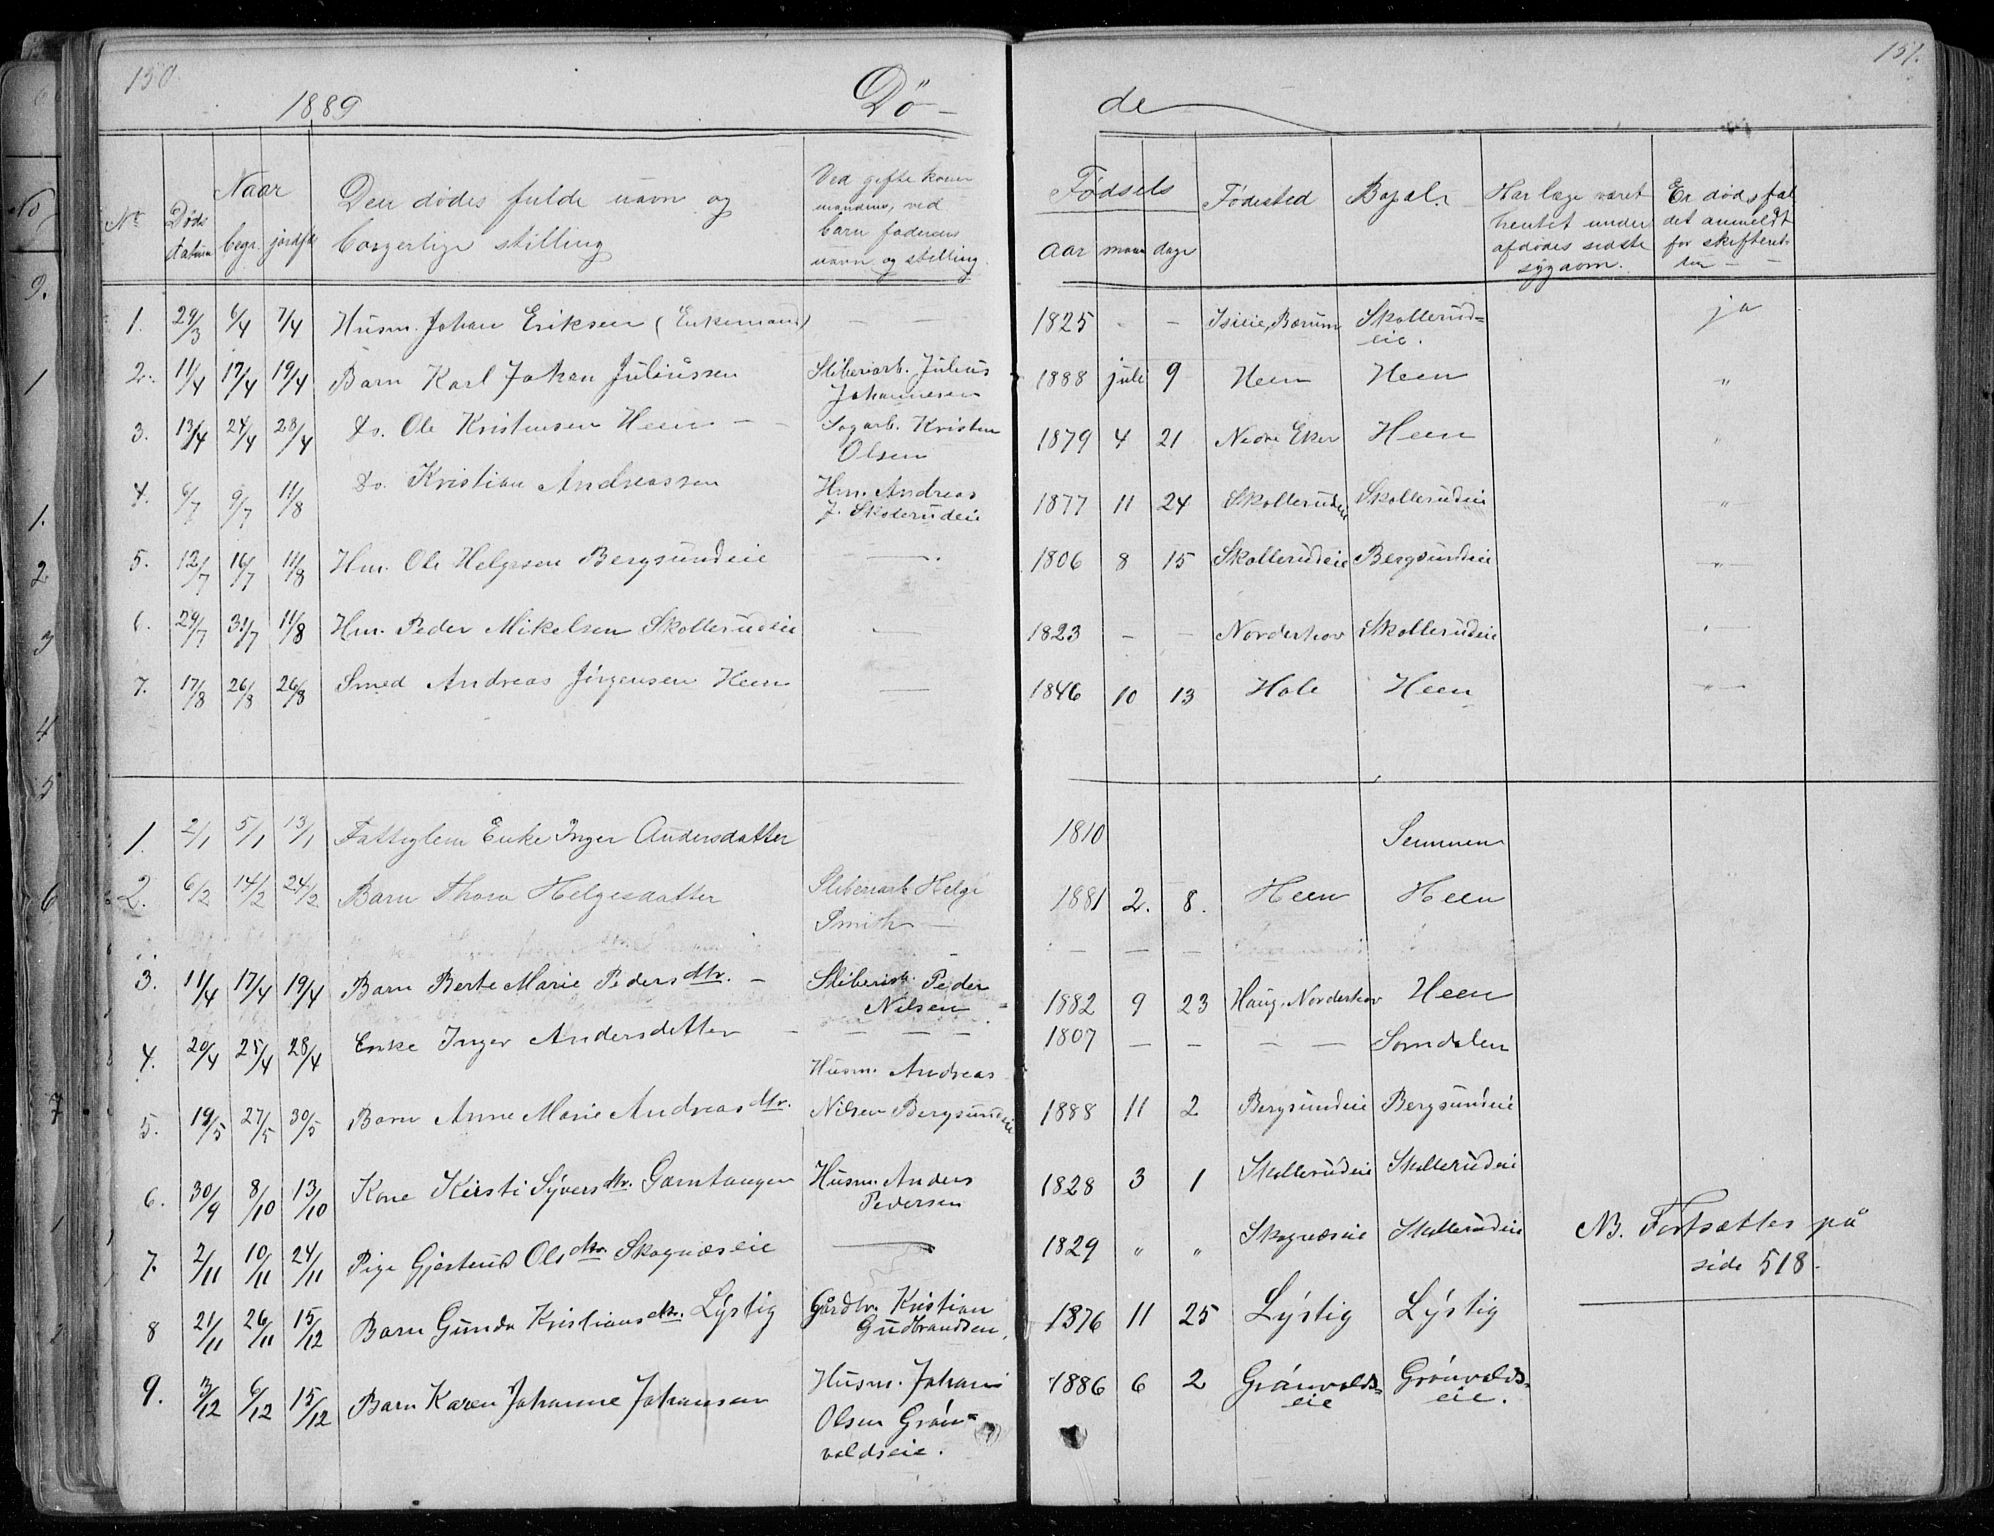 150.
1889
Dö-
de
151.
No
Naar
Døds datum
begr.
jordf.
Den dødes fulde navn og
borgerlige stilling
Ved gifte koner
mandens, ved
barn faderens
navn og stilling.
Fødsels
aar maan dage
Fødested
Bopæl.
Har læge været
hentet under
afdødes sidste
sygdom.
Er dødsfal
det anmeldt
for skifteret-
ten -
1. 29/3 6/4 7/4 Husm. Johan Eriksen (Enkemand) — — 1825 - - Isieie, Bærum Skollerud=
eie. ja
2. 11/4 17/4 19/4 Barn Karl Johan Juliussen Sliberiarb. Julius
Johannesen 1888 juli 9 Heen Heen "
3. 13/4 24/4 28/4 Do. Ole Kristensen Heen - - Sagarb. Kristen
Olsen 1879 4 21 Nedre Eker Heen "
4. 6/7 9/7 11/8 Do. Kristian Andreassen Hm. Andreas
J. Skolerudeie 1877 11 24 Skollerudeie Skollerudeie "
5. 12/7 16/7 11/8 Hm. Ole Helgesen Bergsundeie — 1806 8 15 Skollerudeie Bergsundeie "
6. 29/7 31/7 11/8 Hm. Peder Mikelsen Skollerudeie — 1823 - - Norderhov Skollerudeie "
7. 17/8 26/8 26/8 Smed Andreas Jörgensen Heen — 1846 10 13 Hole Heen "
1. 2/1 5/1 13/1 Fattiglem Enke Inger Andersdatter 1810 Semmen
2. 6/2 14/2 24/2 Barn Thora Helgesdatter Sliberiarb Helge
Smith — 1881 2. 8. Heen Heen
3. 11/4 17/4 19/4 Barn Berte Marie Pedersdtr. - Sliberiarb. Peder
Nilsen 1882 9 23 Haug, Norderhov Heen
4. 20/4 25/4 28/4 Enke Inger Andersdatter - - - - 1807 — — — — Somdalen
5. 19/5 27/5 30/5 Barn Anne Marie Andreasdtr. Husm. Andreas
Nilsen Bergsundeie 1888 11 2 Bergsundeie Bergsundeie
6. 30/9 8/10 13/10 Kone Kirsti Syversdtr. Garntangen Husm. Anders
Pedersen 1828 3 1 Skollerudeie Skollerudeie
7. 2/11 10/11 24/11 Pige Gjertrud Olsdtr. Skognæseie — 1829 " " Skognæseie Skollerudeie
NB. Fortsættes på
side 518.
8 21/11 26/11 15/12 Barn Gunda Kristiansdtr. Lystig Gårdbr. Kristian
Gudbrandsen, 1876 11 25 Lystig Lystig
9. 3/12 6/12 15/12 Barn Karen Johanne Johansen Husm. Johan
Olsen Grøn=
voldseie. 1886 6 2 Grønvolds=
eie Grønvolds=
eie.